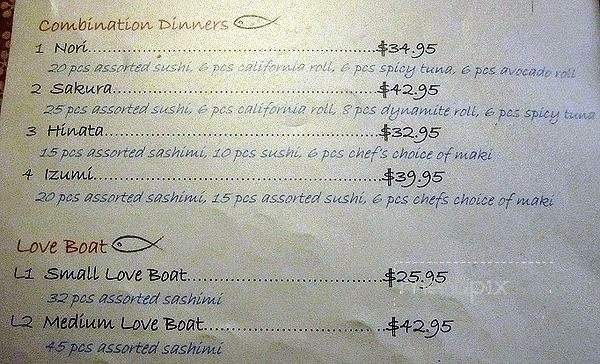 Combination Dinners
1 Nori......................................................$34.95
20 pcs assorted sushi, 6 pcs california roll, 6 pcs spicy tuna, 6 pcs avocado roll
2 Sakura..................................................$42.95
25 pcs assorted sushi, 6 pcs california roll, 8 pcs dynamite roll, 6 pcs spicy tuna
3 Hinata...................................................$32.95
15 pcs assorted sashimi, 10 pcs sushi, 6 pcs chef's choice of maki
4 Izumi.....................................................$39.95
20 pcs assorted sashimi, 15 pcs assorted sushi, 6 pcs chefs choice of maki
Love Boat
L1 Small Love Boat....................................$25.95
32 pcs assorted sashimi
L2 Medium Love Boat.................................$42.95
45 pcs assorted sashimi